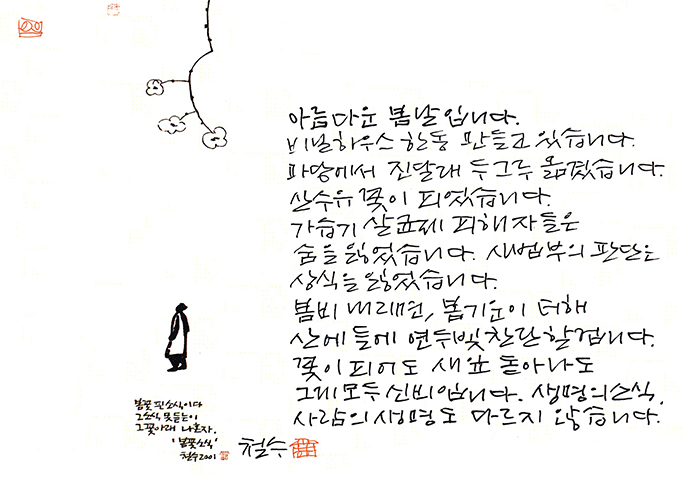 아름다운 봄날입니다.
비닐하우스 한동 만들고 있습니다.
파밭에서 진달래 두그루 옮겼습니다.
산수유 꽃이 피었습니다.
가습기 살균제 피해자들은
숨을 잃었습니다. 사법부의 판단은
상식을 잃었습니다.
봄비 내리면, 봄기운이 더해
산에 들에 연두빛 찬란할겁니다.
꽃이 피어도 새싹 돋아나도
그게 모두 신비입니다. 생명의 소식.
사람의 생명도 다르지 않습니다.
철수
봄꽃 핀 소식이다
그소식 못 듣는이
그 꽃아래 나혼자.
'봄꽃소식'
철수 2001